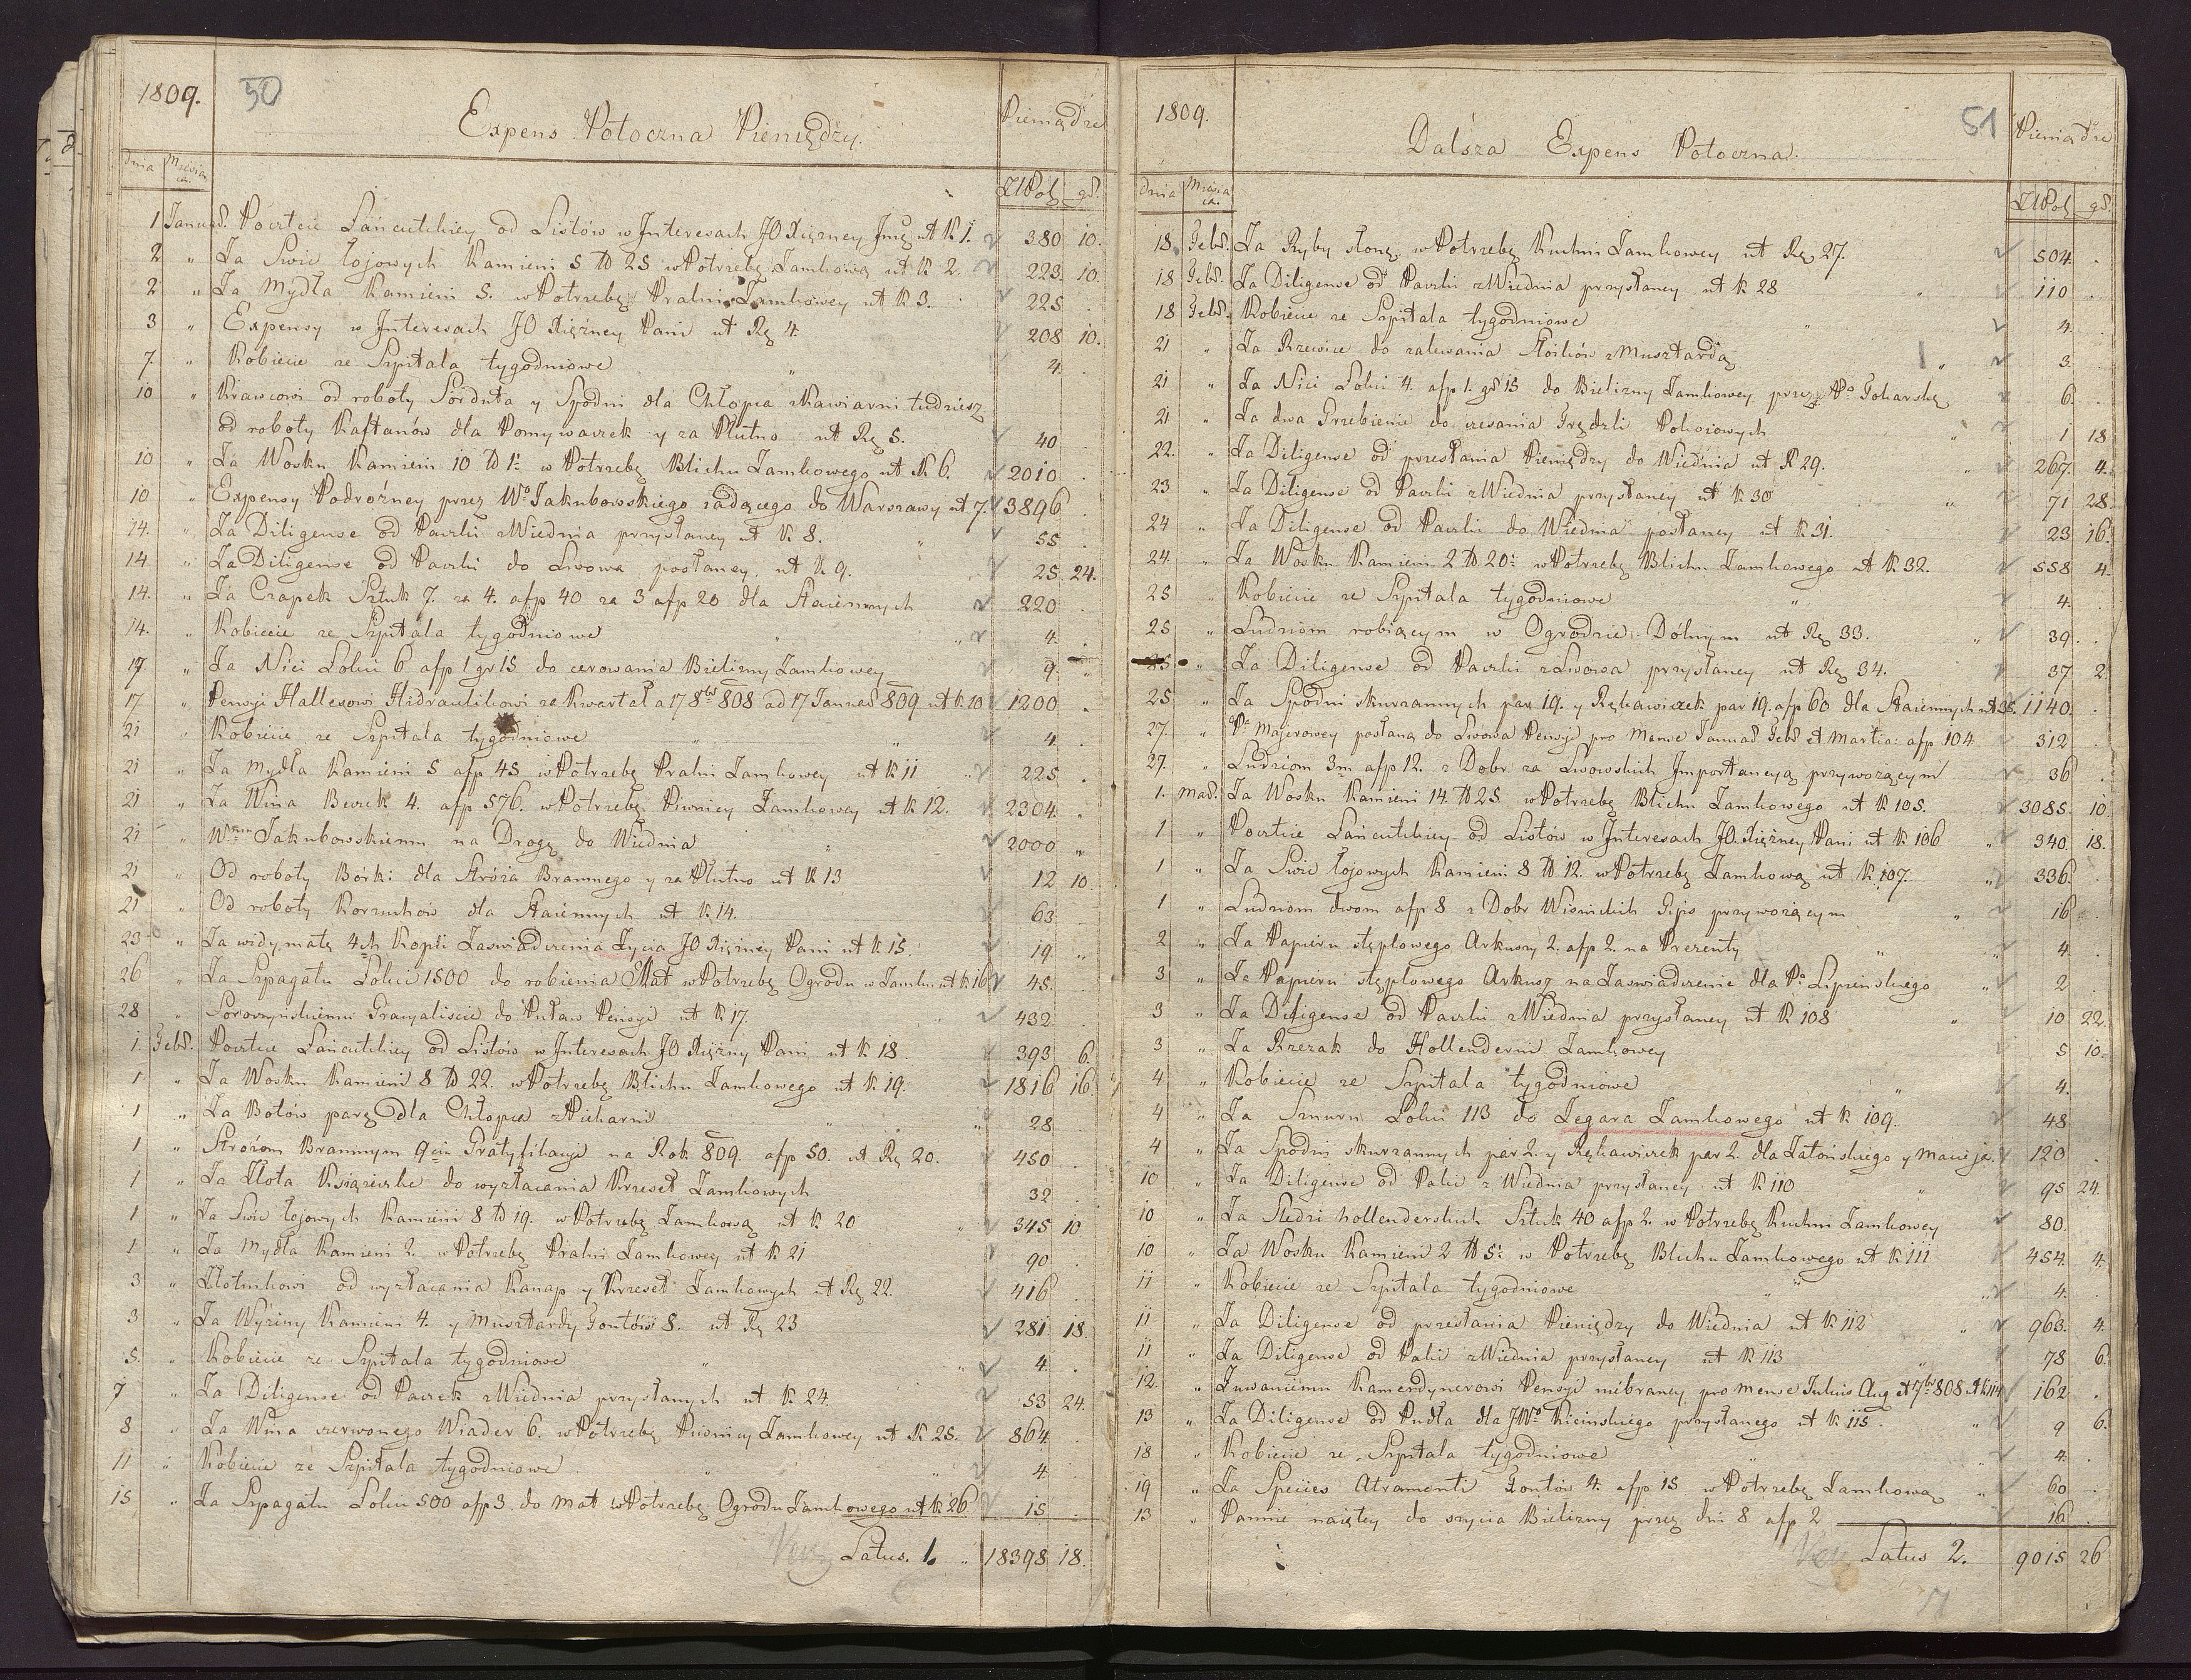 1809. 50
Expens Potoczna Pieniędzy.
Pieniądze
Dnia Miesiąca. ZłPol gr.
1 Januar. Poczcie Łańcutckiey od Listów w Interesach JO Xiężney Jmę ut K 1. 380 10.
2 " Za Swic łojowych Kamieni 5 ℔ 25 w Potrzebę Zamkową ut K 2. 223 10.
2 " Za Mydła Kamieni 5. w Potrzebę Pralni Zamkowey ut K 3. 225 .
3 " Expensy w Interesach JO Xiężney Pani ut Rę 4. 208 10.
7. " Kobiecie ze Szpitala tygodniowe " 4. .
10 " Krawcowi od roboty Sorduta y Spodni dla Chłopca z Kawiarni tudziesz
od roboty Kaftanów dla Pomywaczek y za Płutno ut Rę 5. 40 .
10 " Za Wosku Kamieni 10 ℔ 1: w Potrzebę Blichu Zamkowego ut K 6. 2010 .
10 " Expensy Podrózney przez Wo Jakubowskiego iadącego do Warszawy ut 7. 3896 .
14. " Za Diligense od Paczki z Wiednia przysłaney ut K 8. " 55 .
14 " Za Diligense od Paczki do Lwowa posłaney. ut K 9. 25. 24.
14. " Za Czapek Sztuk 7. za 4. afp 40 za 3 afp 20 dla Staiennych 220 .
14. " Kobiecie ze Szpitala tygodniowe " 4. .
17. " Za Nici Łokci 6 afp 1 gr 15 do cerowania Bielizny Zamkowey 9. "
17 " Pensyi Hallesowi Hidraulikowi za Kwartał a 17 8br 808 ad 17 Januar 809 ut K 10 1200 .
21 " Kobiecie ze Szpitala tygodniowe " " 4 .
21 " Za Mydła Kamieni 5 afp 45 w Potrzebę Pralni Zamkowey ut K 11 " 225 .
21 " Za Wina Beczek 4. afp 576. w Potrzebę Piwnicy Zamkowey ut K 12. 2304. "
21 " Wmu Jakubowskiemu na Drogę do Wiednia " 2000 "
21 " Od roboty Bórk: dla Stróża Bramnego y za Płutno ut K 13 12 10.
21 " Od roboty Korzuchów dla Staiennych ut K 14. 63 .
23 " Za widymatę 4ch Kopii Zaswiadczenia Życia JO Xiężney Pani ut K 15. 19. "
26 " Za Szpagatu Łokci 1500 do robienia Mat w Potrzebę Ogrodu w Zamku ut K 16 45. .
28 " Soroczynskiemu Gracyaliscie do Puław Pensyi ut K 17. 432 .
1 Febr. Poczcie Łańcutckiey od Listów w Interesach JO Xiężny Pani ut K 18. 393 6.
1 " Za Wosku Kamieni 8 ℔ 22. w Potrzebę Blichu Zamkowego ut K 19. 1816 16.
1 " Za Botów parę dla Chłopca z Piekarni " " 28 .
1 " Stróżom Bramnym 9ciu Gratyfikacyi na Rok 809. afp 50. ut Rę 20. 450 .
1 " Za Złota Ksiązeczke do wyzłacania Krzeseł Zamkowych 32 .
1 " Za Swic łojowych Kamieni 8 ℔ 19. w Potrzebę Zamkową ut K 20 " 345 10
1 " Za Mydła Kamieni 2. w Potrzebę Pralni Zamkowey ut K 21 90 .
3 " Złotnikowi od wyzłacania Kanap y Krzeseł Zamkowych ut Rę 22. 416 .
3 " Za Wyziny Kamieni 4. y Musztardy Fontów 8. ut Rę 23 281 18.
5. " Kobiecie ze Szpitala tygodniowe " " 4 .
7 " Za Diligense od Paczek z Wiednia przysłanych ut K 24. 53 24.
8 " Za Wina czerwonego Wiader 6. w Potrzebę Piwnicy Zamkowey ut K 25. 864 .
11 " Kobiecie ze Szpitala tygodniowe " " 4. .
15 " Za Szpagatu Łokci 500 afp 3. do Mat w Potrzebę Ogrodu Zamkowego ut K 26. 15 .
Latus. 1. " 18398 18.
1809. 51
Dalsza Expens Potoczna.
Pieniądze
Dnia Miesiąca. ZłPol gr.
18. Febr. Za Ryby słone w Potrzebę Kuchni Zamkowey ut Rę 27. 504 .
18 Febr. Za Diligense od Paczki z Wiednia przysłaney ut K 28 " 110 .
18 Febr. Kobiecie ze Szpitala tygodniowe " 4. .
21 " Za Rzewice do zalewania Słoików z Musztardą " 3. .
21 " Za Nici Łokci 4. afp 1. gr 15 do Bielizny Zamkowey przez Pa Tokarskę 6. .
21 " Za dwa Grzebienie do czesania Frędzli Pokoiowych " 1 18
22. " Za Diligense od przesłania Pieniędzy do Wiednia ut K 29. " 267. 4.
23 " Za Diligense od Paczki z Wiednia przysłaney ut K 30 " 71 28.
24 " Za Diligense od Paczki do Wiednia posłaney ut K 31. 23 16.
24. " Za Wosku Kamieni 2 ℔ 20: w Potrzebę Blichu Zamkowego ut K 32. 558 4.
25 " Kobiecie ze Szpitala tygodniowe " 4. .
25 " Ludziom robiącym w Ogrodzie Dólnym ut Rę 33. " 39. .
25 " Za Diligense od Paczki z Lwowa przysłaney ut Rę 34. 37 2.
25 " Za Spodni skurzannych par 19. y Rękawiczek par 19. afp 60 dla Staiennych ut 35. 1140. .
27. " Pe Majerowey posłana do Lwowa Pensyi pro Mense Januar Febr et Martio: afp 104 312 .
27. " Ludziom 3m afp 12. z Dobr za Lwowskich Importancyą przywożącym 36 .
1. Mar. Za Wosku Kamieni 14 ℔ 25 w Potrzebę Blichu Zamkowego ut K 105. 3085. 10
1 " Poczcie Łańcutckiey od Listów w Interesach JO Xiężney Pani ut K 106 " 340. 18.
1 " Za Swic łojowych Kamieni 8 ℔ 12. w Potrzebę Zamkową ut K 107. " 336. .
1 " Ludziom dwom afp 8 z Dobr Wisnickich Gips przywożącym " 16 .
2 " Za Papieru stęplowego Arkuszy 2. afp 2. na Prezenty " " 4. .
3 " Za Papieru stęplowego Arkusz na Zaswiadczenie dla Pa Lipienskiego " 2 .
3 " Za Diligense od Paczki z Wiednia przysłaney ut K 108 " 10 22.
3 " Za Rzezak do Hollenderni Zamkowey 5 10.
4 " Kobiecie ze Szpitala tygodniowe " 4. .
4 " Za Sznuru Łokci 113 do Zegara Zamkowego ut K 109. 48 .
4 " Za Spodni skurzannych par 2. y Rękawiczek par 2. dla Zatońskiego y Macieja. 120 .
10 " Za Diligense od Paki z Wiednia przysłaney ut K 110 " 95 24.
10 " Za Sledzi hollenderskich Sztuk 40 afp 2. w Potrzebę Kuchni Zamkowey 80. .
10 " Za Wosku Kamieni 2 ℔ 5: w Potrzebę Blichu Zamkowego ut K 111 454. 4.
11 " Kobiecie ze Szpitala tygodniowe " " 4. .
11 " Za Diligense od przesłania Pieniędzy do Wiednia ut K 112 " 963. 4.
11 " Za Diligense od Paki z Wiednia przysłaney ut K 113 " 78 6.
12. " Kamerdynerowi Pensyi niebraney pro Mense Julius Aug et 7br 808 ut K 114 162 .
13 " Za Diligense od Pudła dla JWo Kicińskiego przysłanego ut K 115. " 9 6.
18 " Kobiecie ze Szpitala tygodniowe " 4. .
19 " Za Species Atramenti Fontów 4. afp 15 w Potrzebę Zamkową " 60 .
13 " Pannie naiętey do szycia Bielizny przez dni 8 afp 2 16 .
Latus 2. 9015 26